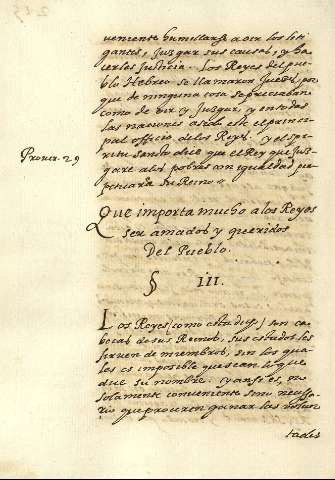 219
veniente humillarse a oir los liti
gantes, Juzgar sus causas, y ha
cerles Justicia. Los Reyes del pue
blo Hebreo se llamaron Jueces por
que de ninguna cosa se preciaban
como de oir y Juzgar, y en todas
las naciones es el prinçi
pal officio de los Reyes. y el spi
ritu sancto dice que el Rey que Juz
gare a los pobres con igualdad per
petuara su Reino.
Prouer. 29
Que importa mucho a los Reyes
ser amados y queridos
Del Pueblo.
§ III.
Los Reyes (como esta dicho) son ca
beças de sus Reinos, sus estados les
siruen de miembros, sin los qua
les es imposible que sean lo que
dice su nombre. y ansi es, no
solamente conueniente sino neçessa
rio que procuren ganar las volun
tades